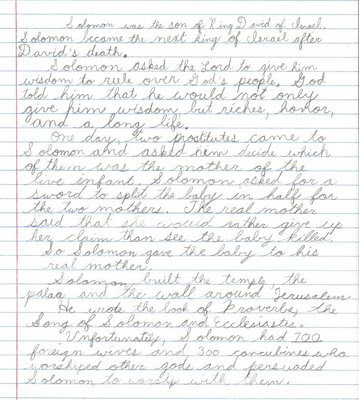 Solomon was the son of King David of Israel.
Solomon became the next king of Israel after
David's death.
Solomon asked the Lord to give him
wisdom to rule over God's people. God
told him that he would not only
give him wisdom but riches, honor,
and a long life.
One day, two prostitutes came to
Solomon and asked him decide which
of them was the mother of the
live enfant. Solomon asked for a
sword to split the baby in half for
the two mothers. The real mother
said that she would rather give up
her claim than see the baby killed.
So Solomon gave the baby to his
real mother.
Solomon built the temple the
palac and the wall around Jerusalem.
He wrote the book of Proverbs, the
Song of Solomon and Ecclesiastes.
Unfortunately, Solomon had 700
foreign wives and 300 concubines who
worshiped other gods and persuaded
Solomon to worsip with them.